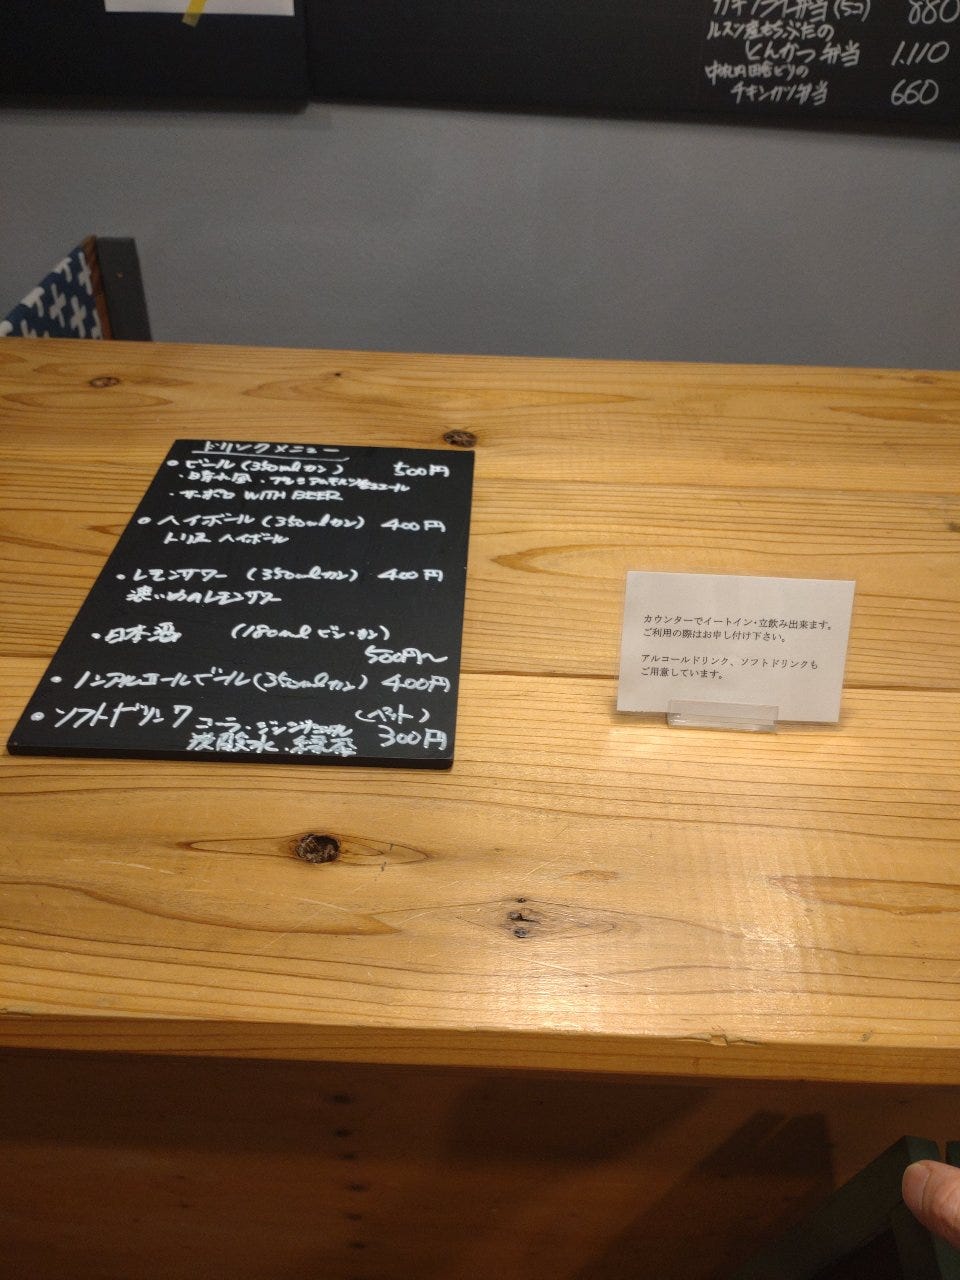 カキフライ弁当(5コ) 880
ルスツ産もちぶたの
とんかつ弁当 1.110
中札内田舎どりの
チキンカツ弁当 660
ドリンクメニュー
ビール(350mlカン) 500円
・プレミアムモルツ
・サッポロ WITH BEER
ハイボール(350mlカン) 400円
トリス ハイボール
・レモンサワー (350mlカン) 400円
濃いめのレモンサワー
・日本酒 (180ml ビン・カン)
500円〜
・ノンアルコールビール(350mlカン) 400円
ソフトドリンク (ペット)
コーラ・ジンジャエール 300円
炭酸水・緑茶
カウンターでイートイン・立飲み出来ます。
ご利用の際はお申し付け下さい。
アルコールドリンク、ソフトドリンクも
ご用意しています。